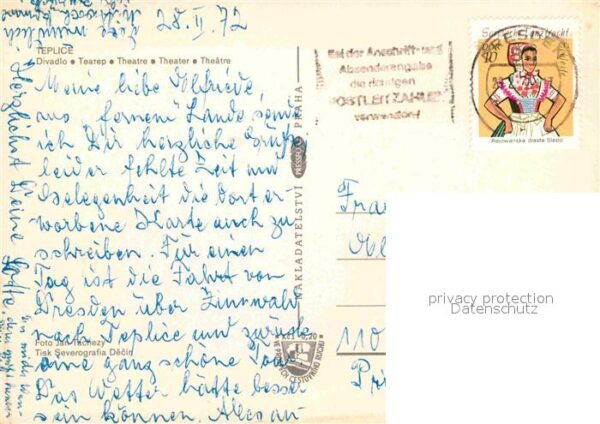 28. II. 72
TEPLICE
Divadlo • Театер • Theatre • Theater • Théâtre
Meine liebe Elfriede,
aus fernem Lande sende
ich Dir herzliche Grüße
leider fehlte Zeit und
Gelegenheit die dort er-
worbene Karte auch zu
schreiben. Für einen
Tag ist die Fahrt von
Dresden über Zinnwald
nach Teplice und zurück
eine ganz schöne Tour
Das Wetter hätte besser
sein können. Alles an-
Foto Jan Tachezy
Tisk Severografia Děčín
Herzlichst Deine
NAKLADATELSTVÍ PRESSFOTO PRAHA
Kčs 0,20
Bei der Anschrift und
Absenderangabe
die richtigen
POSTLEITZAHLEN
verwenden!
DRESDEN
Sorbische Tanztracht
DDR
10
Rejowanska drasta Slepo
Frau
110
privacy protection
Datenschutz